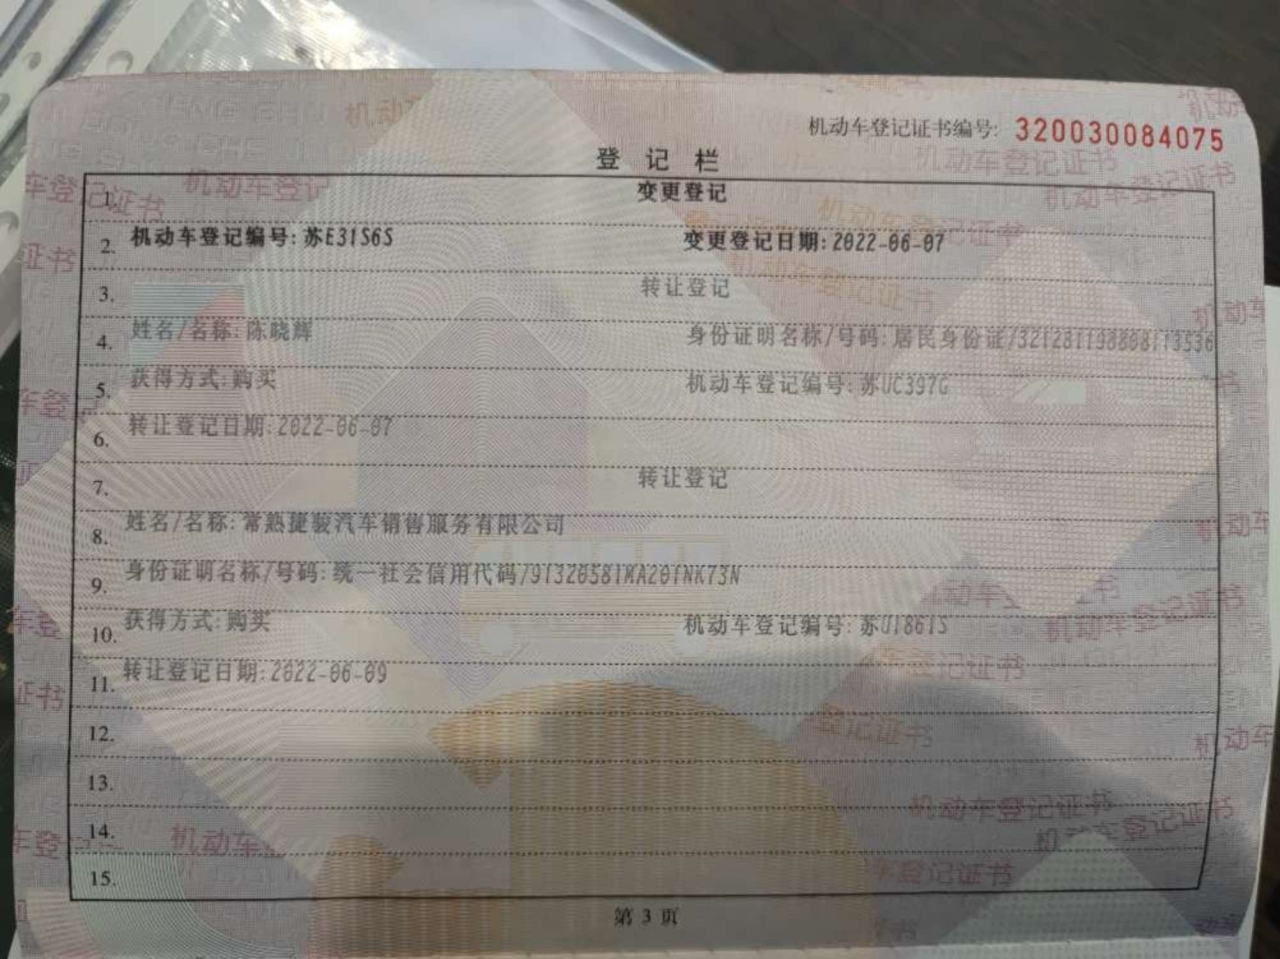 机动车登记证书编号: 320030084075
登记栏
1. 变更登记
2. 机动车登记编号: 苏E31S6S 变更登记日期: 2022-06-07
3. 转让登记
4. 姓名/名称: 陈晓辉 身份证明名称/号码: 居民身份证/321281198808113536
5. 获得方式: 购买 机动车登记编号: 苏UC397G
6. 转让登记日期: 2022-06-07
7. 转让登记
8. 姓名/名称: 常熟捷骏汽车销售服务有限公司
9. 身份证明名称/号码: 统一社会信用代码/91320581MA201NK73N
10. 获得方式: 购买 机动车登记编号: 苏U1861S
11. 转让登记日期: 2022-06-09
12.
13.
14.
15.
第 3 页